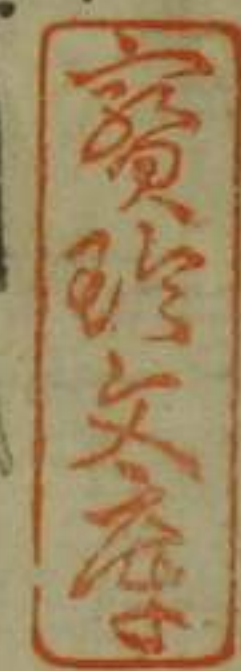 寶玲文庫